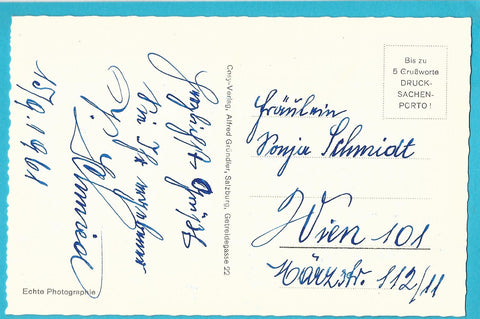 15/9. 1961
Herzlichste Grüße
Cosy-Verlag, Alfred Gründler, Salzburg, Getreidegasse 22
Echte Photographie
Bis zu
5 Grußworte
DRUCK-
SACHEN-
PORTO!
Fräulein
Sonja Schmidt
Wien 101
Märzstr. 112/11